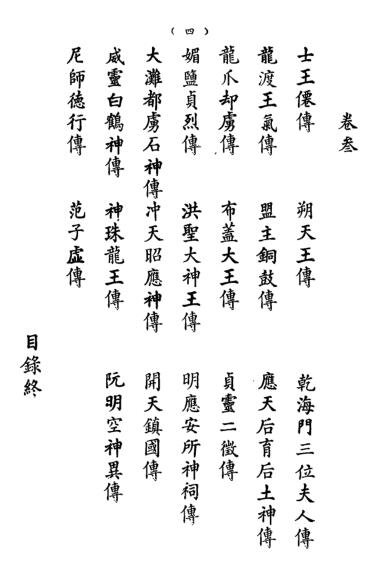 (四)
卷叁
士王僊傳 朔天王傳 乾海門三位夫人傳
龍渡王氣傳 盟主銅鼓傳 應天后育后土神傳
龍爪却虜傳 布蓋大王傳 貞靈二徵傳
媚鹽貞烈傳 洪聖大神王傳 明應安所神祠傳
大灘都虜石神傳 冲天昭應神傳 開天鎮國傳
威靈白鶴神傳 神珠龍王傳 阮明空神異傳
尼師德行傳 范子虛傳
目錄終